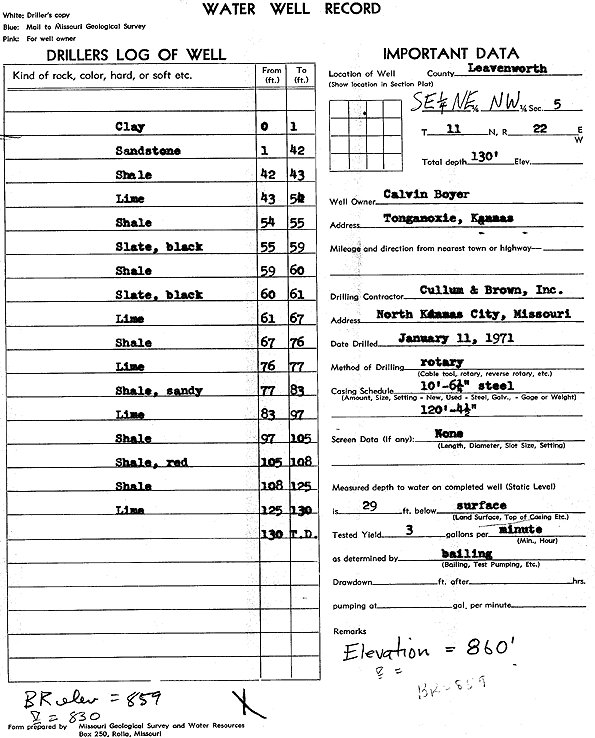 WATER WELL RECORD
White: Driller's copy
Blue: Mail to Missouri Geological Survey
Pink: For well owner
DRILLERS LOG OF WELL
Kind of rock, color, hard, or soft etc. From (ft.) To (ft.)
Clay 0 1
Sandstone 1 42
Shale 42 43
Lime 43 54
Shale 54 55
Slate, black 55 59
Shale 59 60
Slate, black 60 61
Lime 61 67
Shale 67 76
Lime 76 77
Shale, sandy 77 83
Lime 83 97
Shale 97 105
Shale, red 105 108
Shale 108 125
Lime 125 130
130 T.D.
BR elev = 859
∇ = 830
X
Form prepared by Missouri Geological Survey and Water Resources
Box 250, Rolla, Missouri
IMPORTANT DATA
Location of Well County Leavenworth
(Show location in Section Plat)
SE¼ NE¼ NW¼ Sec. 5
T. 11 N, R 22 E
W
Total depth 130' Elev.
Well Owner Calvin Boyer
Address Tonganoxie, Kansas
Mileage and direction from nearest town or highway
Drilling Contractor Cullum & Brown, Inc.
Address North Kansas City, Missouri
Date Drilled January 11, 1971
Method of Drilling rotary
(Cable tool, rotary, reverse rotary, etc.)
Casing Schedule 10'-6¼" steel
(Amount, Size, Setting - New, Used - Steel, Galv., - Gage or Weight)
120'-4½"
Screen Data (if any): None
(Length, Diameter, Slot Size, Setting)
Measured depth to water on completed well (Static Level)
is 29 ft. below surface
(Land Surface, Top of Casing Etc.)
Tested Yield 3 gallons per minute
(Min., Hour)
as determined by bailing
(Bailing, Test Pumping, Etc.)
Drawdown ft. after hrs.
pumping at gal. per minute
Remarks
Elevation = 860'
∇ =
BR-859